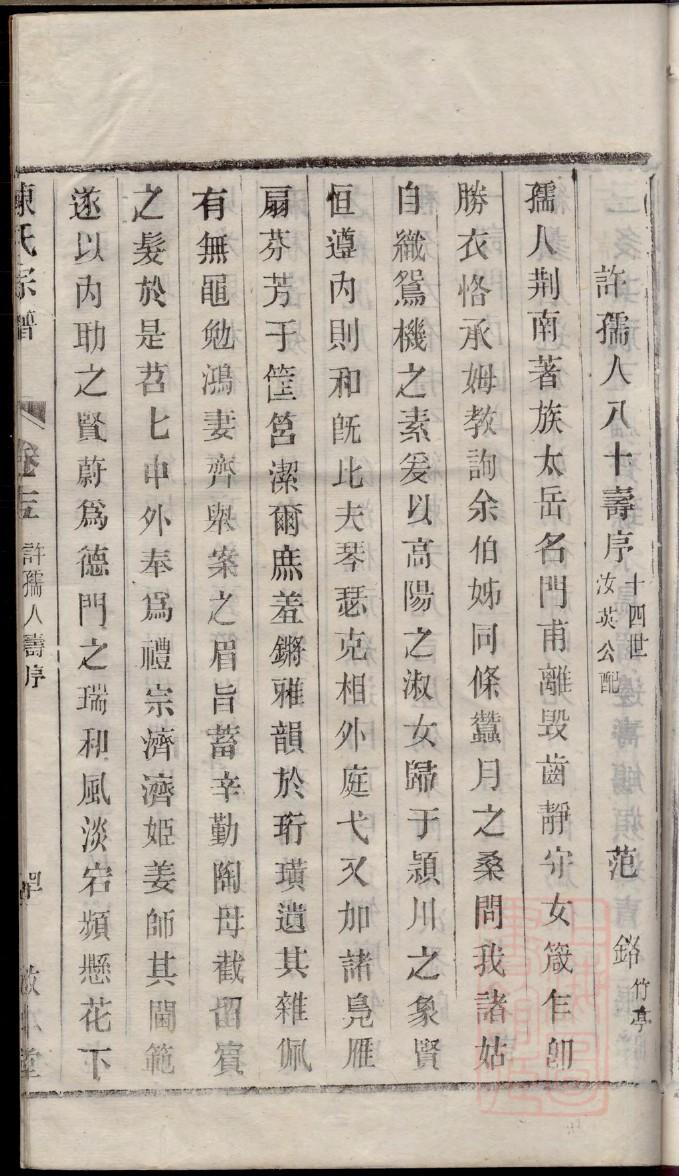 許孺人八十壽序 十四世汝英公配 范 鏴 竹亭
孺人荆南著族太岳名門甫離毀齒靜守女箴乍卽
勝衣恪承姆教詢余伯姊同條蠶月之桑問我諸姑
自織鴛機之素爰以高陽之淑女歸于潁川之象賢
恒遵內則和旣比夫琴瑟克相外庭弋又加諸鳧雁
扇芬芳于筐筥潔爾庶羞鏘雅韻於珩璜遺其雜佩
有無黽勉鴻妻齊舉案之眉旨蓄辛勤陶母截留賓
之髮於是苕七申外奉爲禮宗濟濟姬姜師其閫範
遂以內助之賢蔚爲德門之瑞和風淡宕頫懸花下
陳氏宗譜 卷十五 許孺人壽序 堂